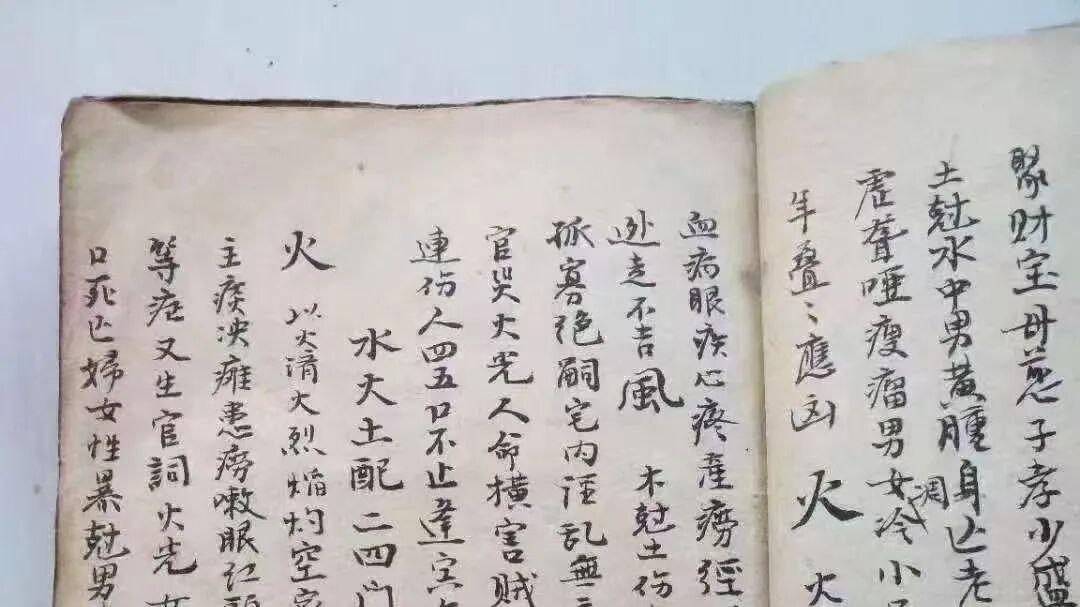 聚财宝母慈子孝少盛
土尅水中男黄腫身亡老
虚聋哑瘦瘤男女凋冷小
年叠〻應凶 火 火
血病眼疾心疼產癆經
逊走不吉風 木尅土伤
孤寡绝嗣宅内诬乱無
官災火光人命横害贼
連伤人四五口不止逢宫
水火土配二四门
火 以火濟火烈焰灼空家
主痰决瘫患癆嗽眼红
等症又生官詞火光女
口死亡婦女性暴尅男